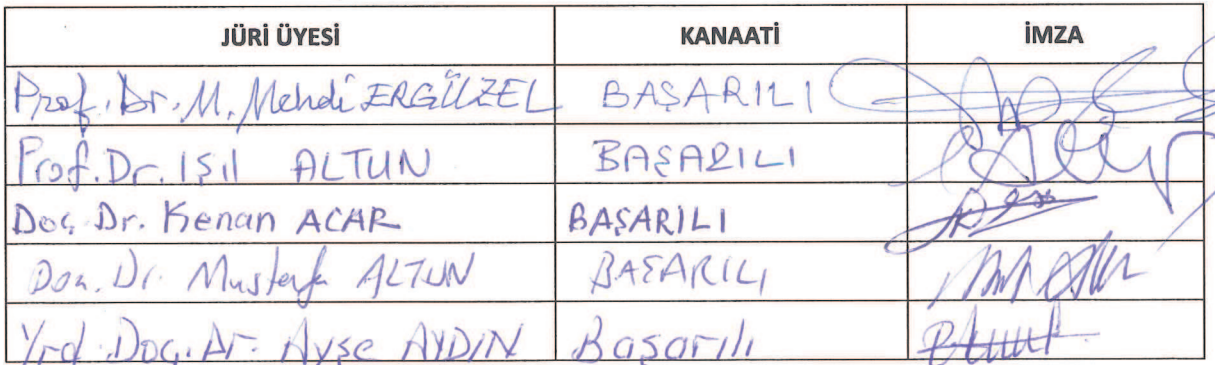 JÜRİ ÜYESİ KANAATİ İMZA
Prof. Dr. M. Mehdi ERGÜZEL BAŞARILI
Prof. Dr. IŞIl ALTUN BAŞARILI
Doç. Dr. Kenan ACAR BAŞARILI
Doç. Dr. Mustafa ALTUN BAŞARILI
Yrd. Doç. Dr. Ayşe AYDIN Başarılı